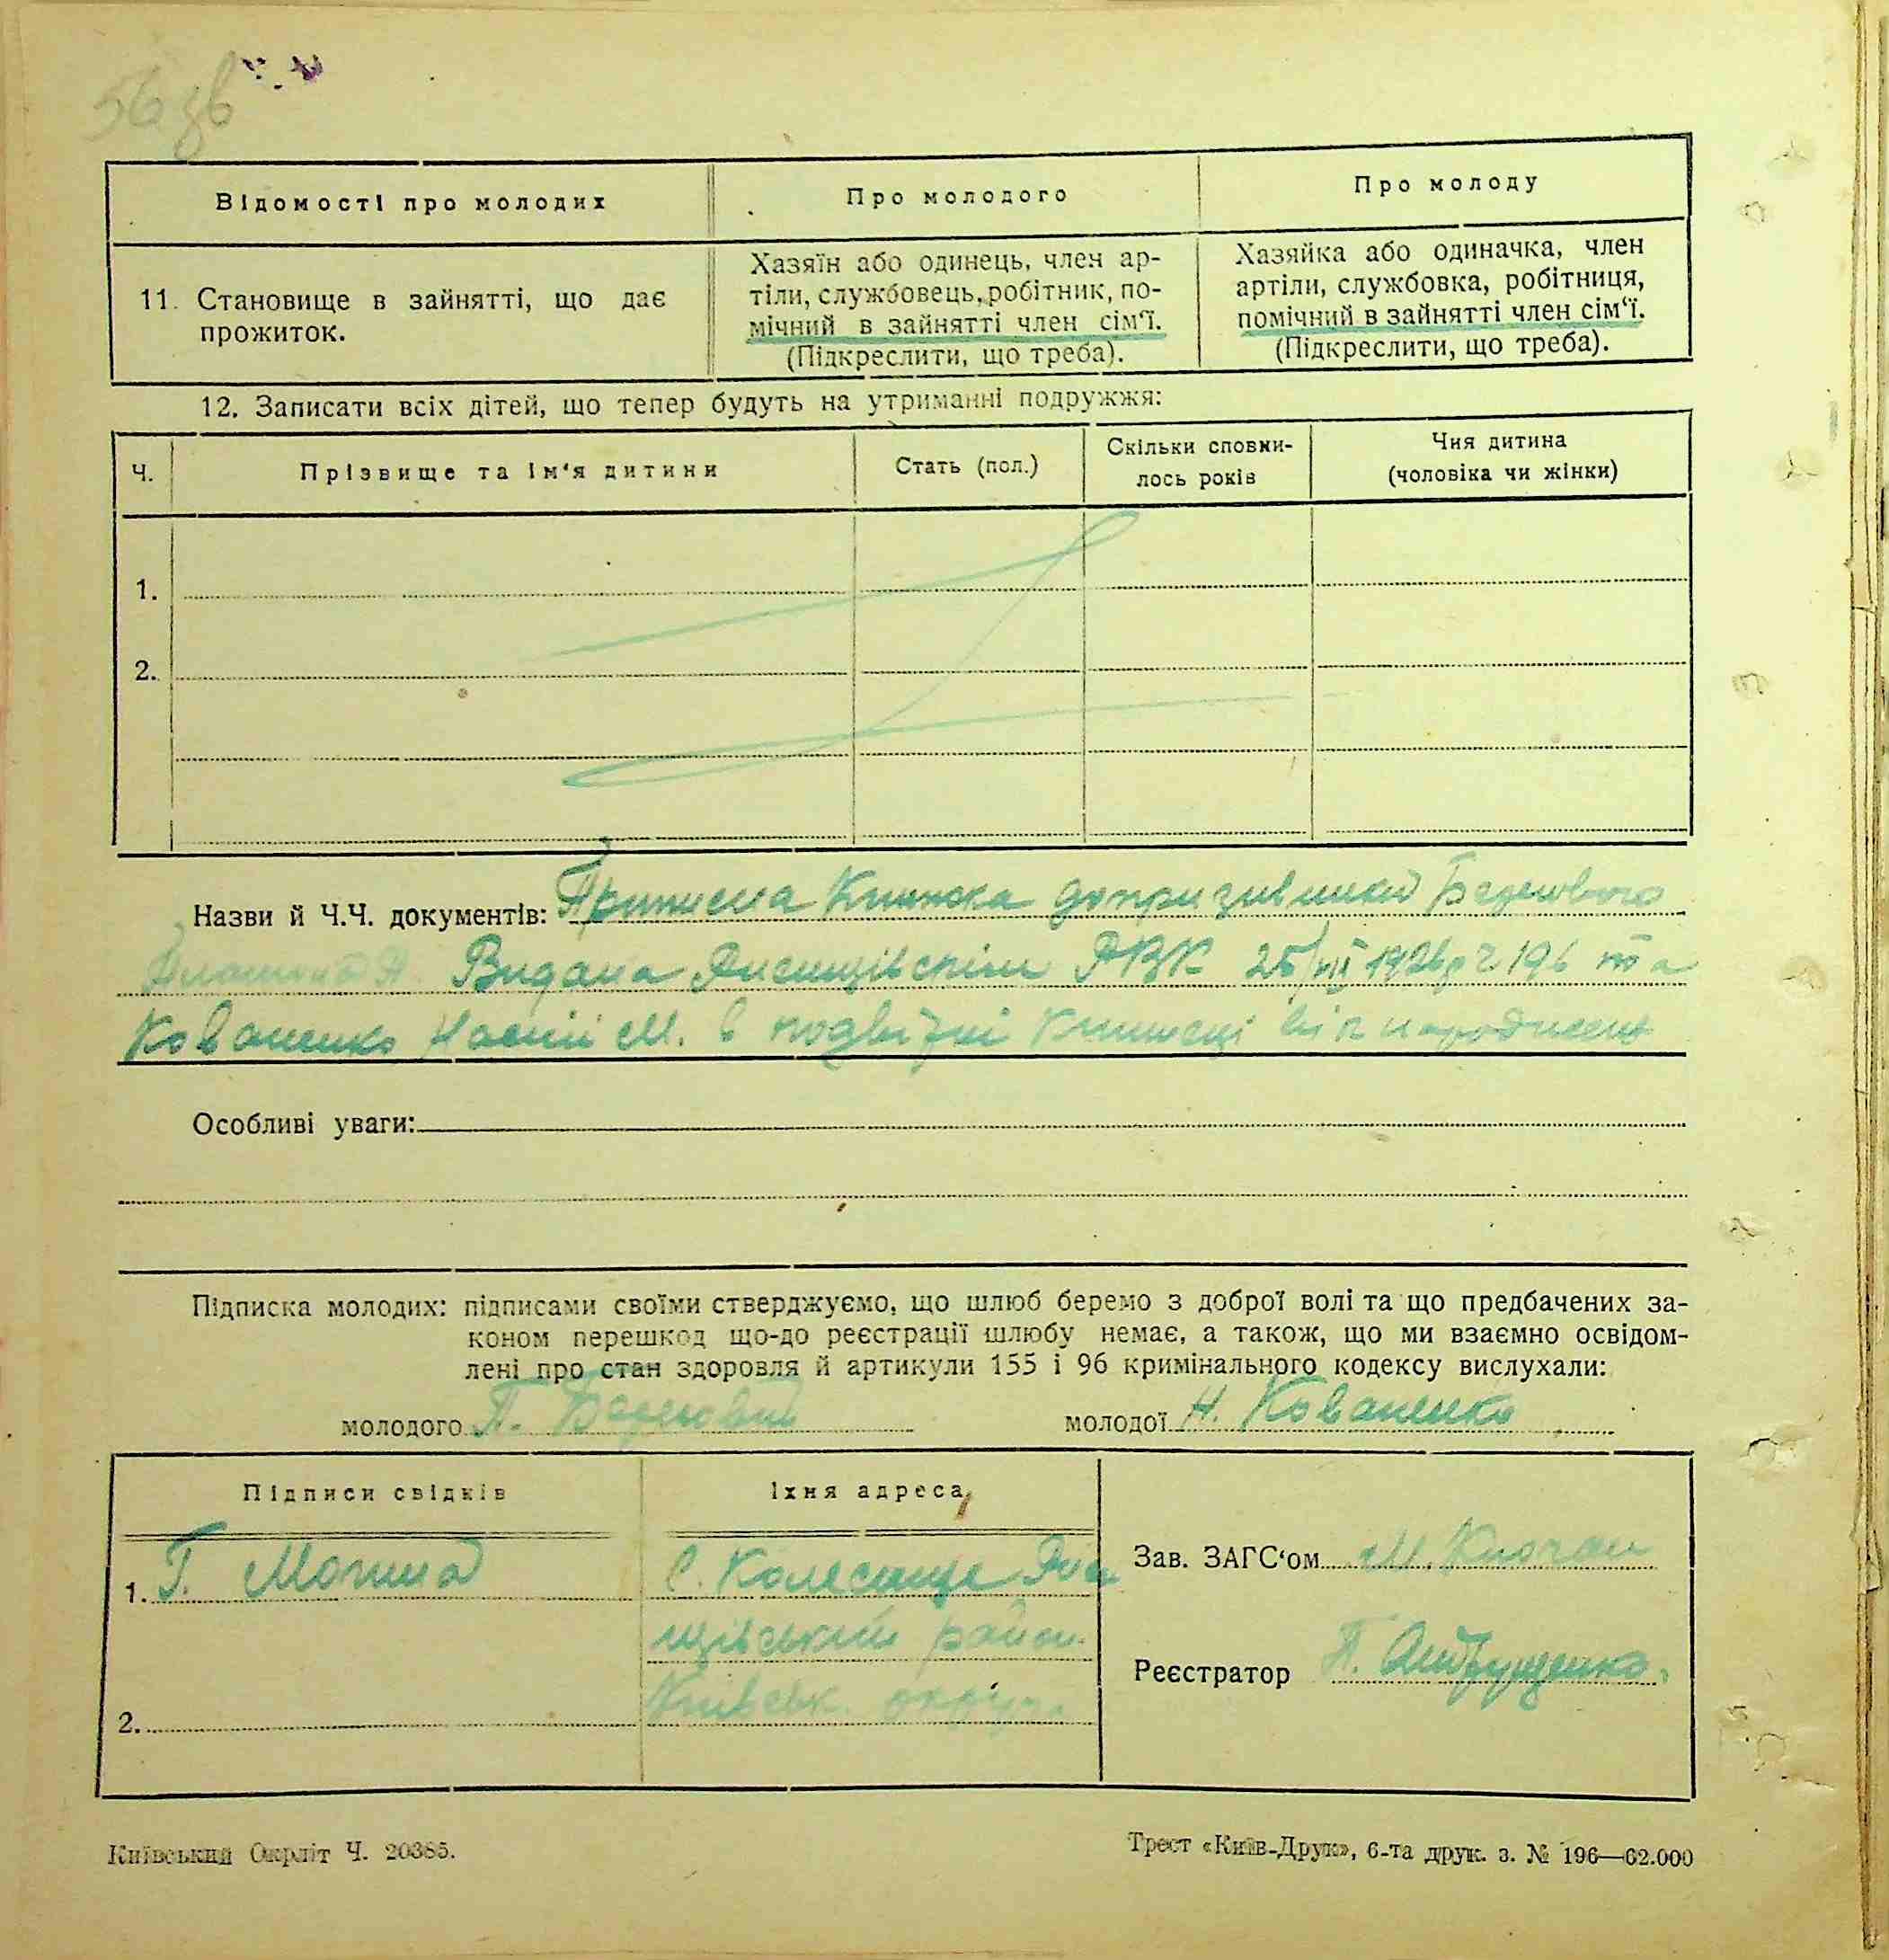 56 зв
Відомості про молодих
Про молодого
Про молоду
11. Становище в зайнятті, що дає
прожиток.
Хазяїн або одинець, член ар-
тіли, службовець, робітник, по-
мічний в зайнятті член сім‘ї.
(Підкреслити, що треба).
Хазяйка або одиначка, член
артіли, службовка, робітниця,
помічний в зайнятті член сім‘ї.
(Підкреслити, що треба).
12. Записати всіх дітей, що тепер будуть на утриманні подружжя:
Ч.
Прізвище та ім‘я дитини
Стать (пол.)
Скільки сповни-
лось років
Чия дитина
(чоловіка чи жінки)
1.
2.
Назви й Ч.Ч. документів: Приписна Книжка допризивника
Видана РВК 25/VII 1926 р Ч 196 та
Коваленко М. в подвірній Книжці
Особливі уваги:
Підписка молодих: підписами своїми стверджуємо, що шлюб беремо з доброї волі та що предбачених за-
коном перешкод що-до реєстрації шлюбу немає, а також, що ми взаємно освідом-
лені про стан здоровля й артикули 155 і 96 кримінального кодексу вислухали:
молодого П.
молодої Н. Коваленко
Підписи свідків
Їхня адреса
1. Г. Могила
С. Колесище
щівський район
Київськ. округ.
2.
Зав. ЗАГС‘ом М. Клочан
Реєстратор П. Андрущенко.
Київський Окрліт Ч. 20385.
Трест «Київ-Друк», 6-та друк. з. № 196—62.000